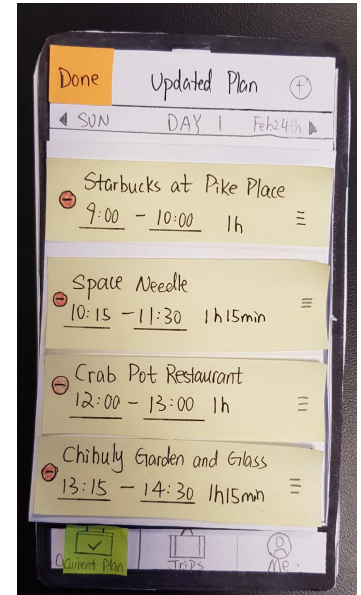 Done Updated Plan +
SUN DAY 1 Feb 24th
Starbucks at Pike Place
9:00 - 10:00 1h
Space Needle
10:15 - 11:30 1h15min
Crab Pot Restaurant
12:00 - 13:00 1h
Chihuly Garden and Glass
13:15 - 14:30 1h15min
Current Plan Trips Me